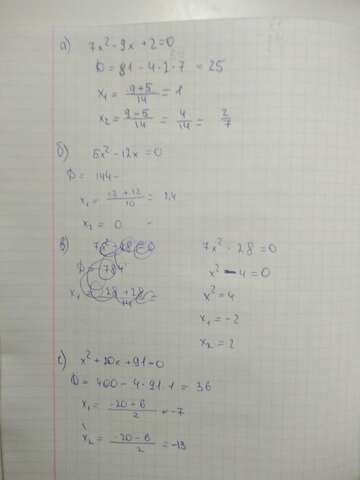 а) 7x² - 9x + 2 = 0
D = 81 - 4·2·7 = 25
x₁ = (9+5)/14 = 1
x₂ = (9-5)/14 = 4/14 = 2/7
б) 5x² - 12x = 0
D = 144
x₁ = (12+12)/10 = 2,4
x₂ = 0
в) 7x² - 28 = 0
D = 784
x₁ = 
7x² - 28 = 0
x² - 4 = 0
x² = 4
x₁ = -2
x₂ = 2
г) x² + 20x + 91 = 0
D = 400 - 4·91·1 = 36
x₁ = (-20-6)/2 = -7
x₂ = (-20-6)/2 = -13